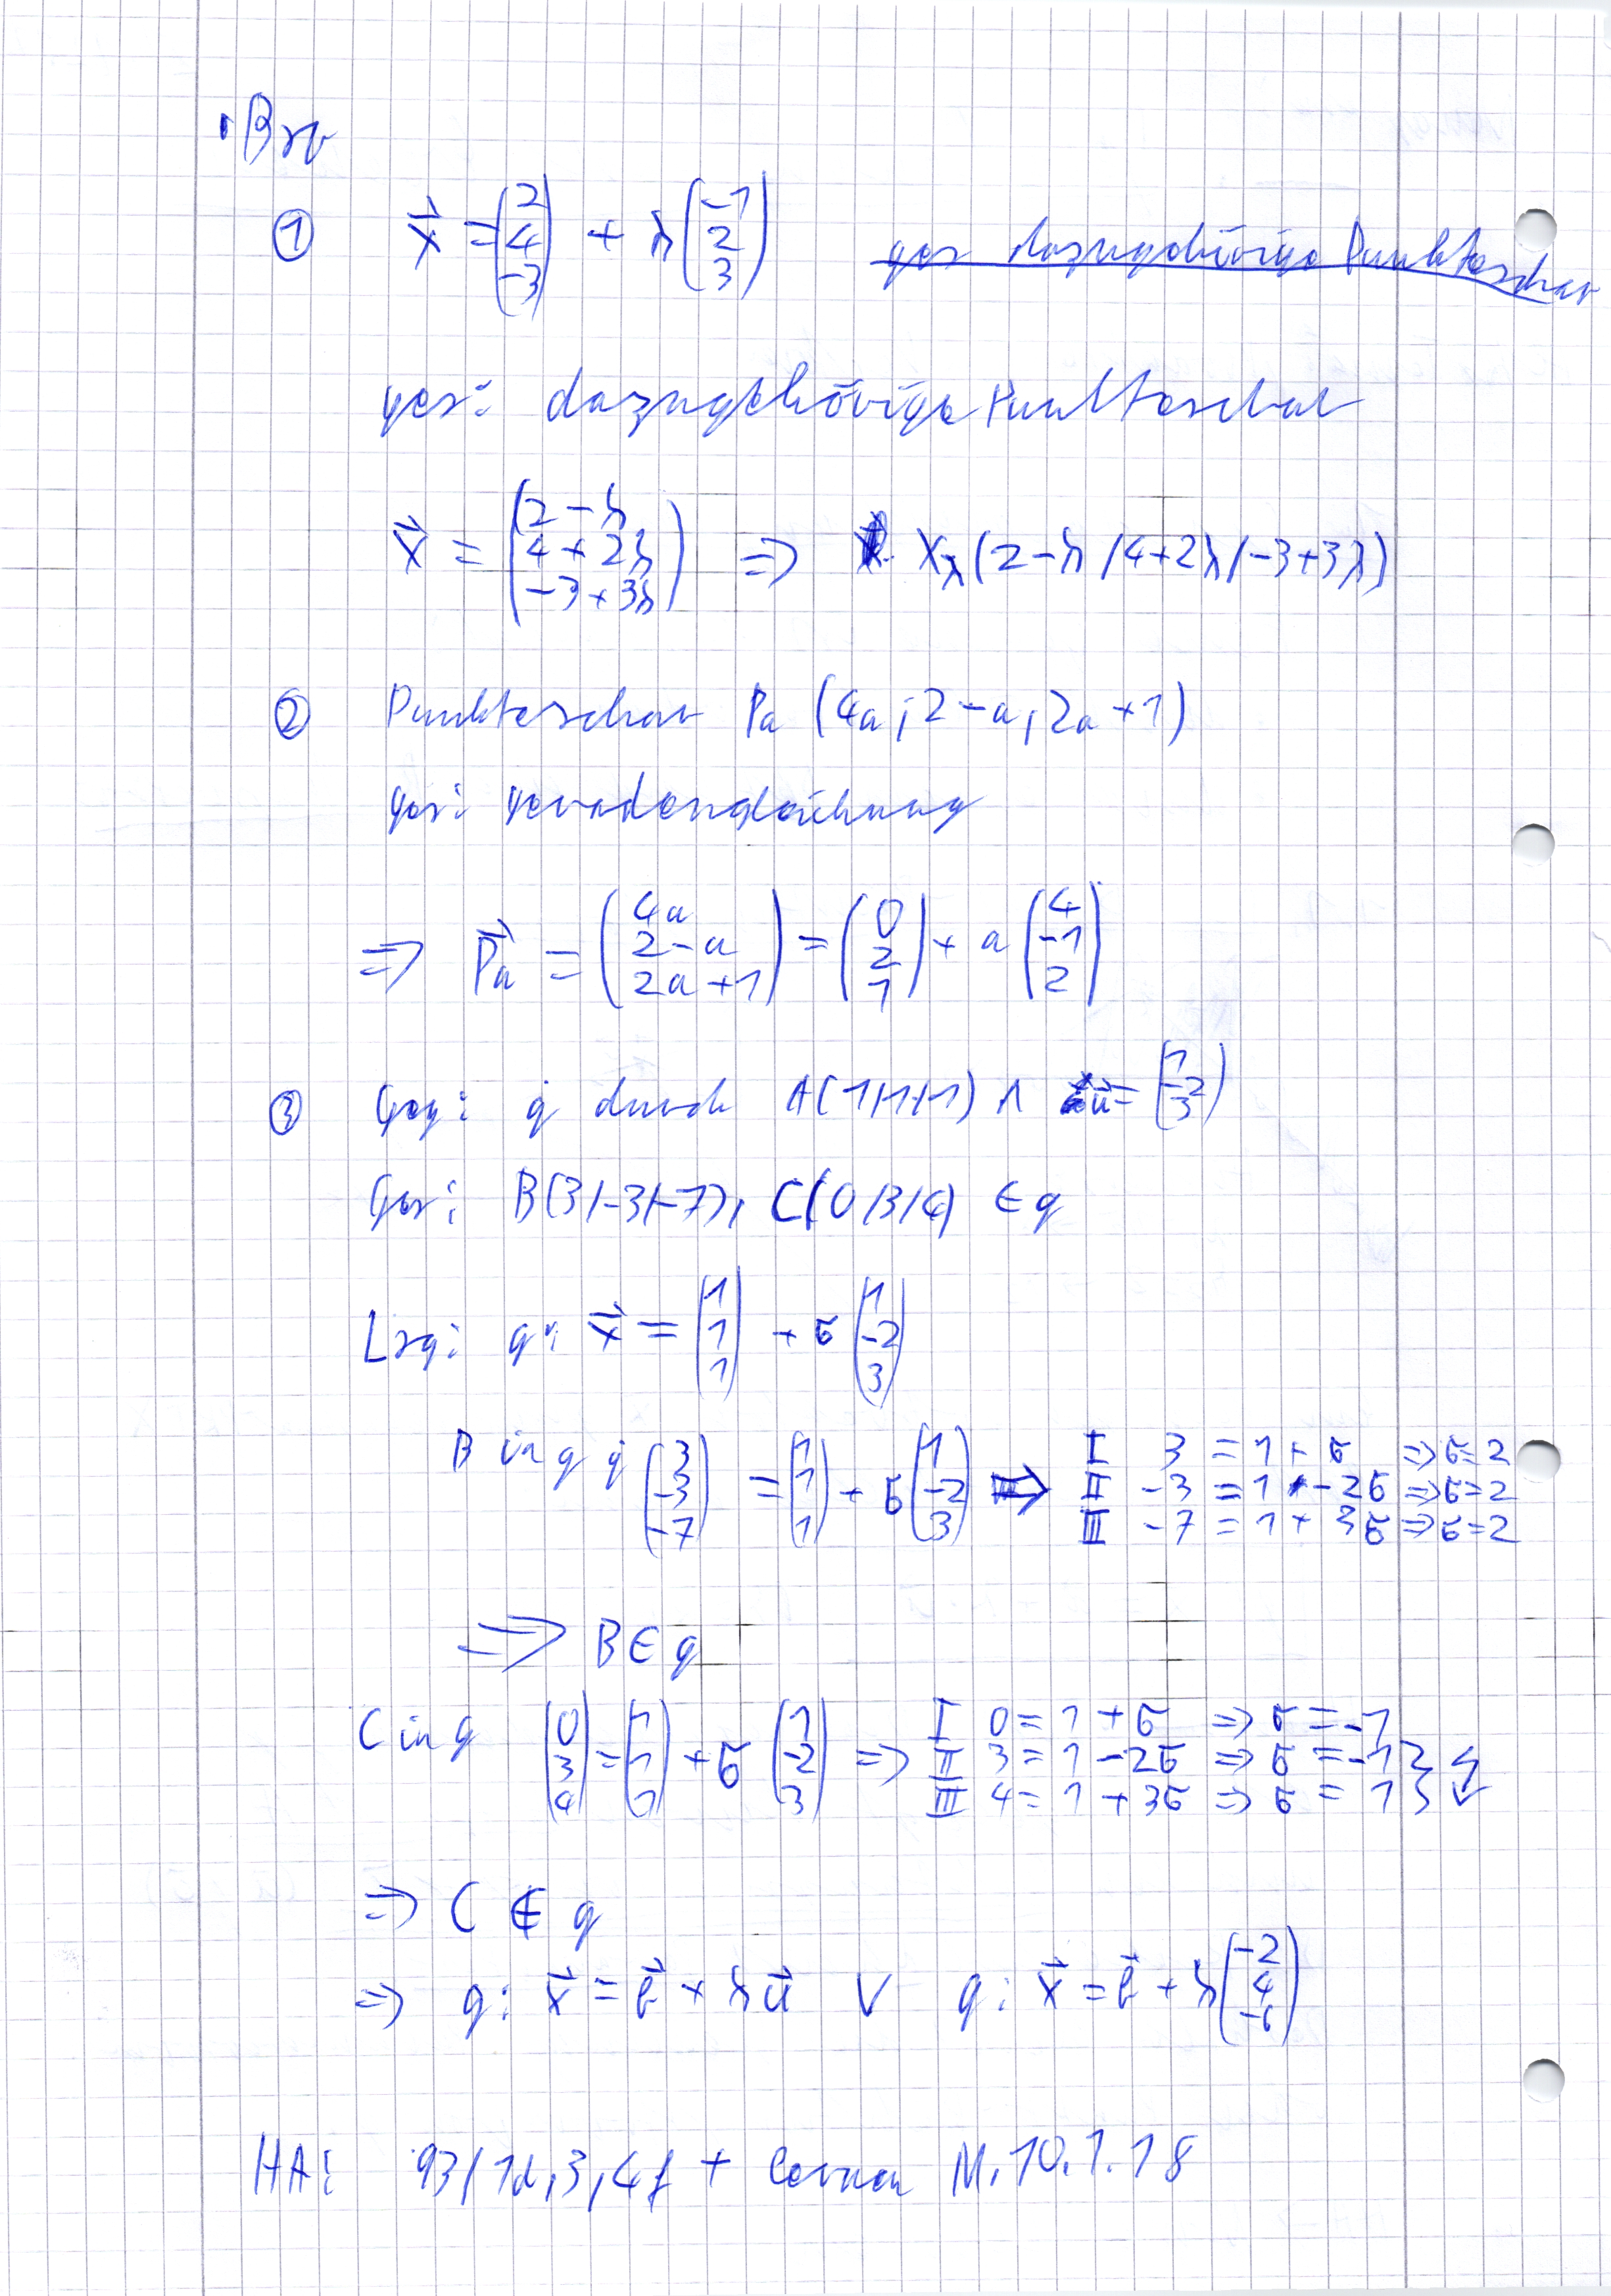 • Bsp
① x⃗ = (2 4 -3) + λ (-1 2 3) ges dazugehörige Punkteschar
ges: dazugehörige Punkteschar
x⃗ = (2 - λ 4 + 2λ -3 + 3λ) => Xλ (2-λ / 4+2λ / -3+3λ)
② Punkteschar Pa (4a ; 2-a ; 2a+1)
ges: geradengleichung
=> P⃗a = (4a 2-a 2a+1) = (0 2 1) + a (4 -1 2)
③ Geg: g durch A(1/1/1) ∧ u⃗ = (1 -2 3)
Ges: B(3/-3/-7), C(0/3/4) ∈ g
Lsg: g: x⃗ = (1 1 1) + σ (1 -2 3)
B in g (3 -3 -7) = (1 1 1) + σ (1 -2 3) =>
I 3 = 1 + σ => σ = 2
II -3 = 1 - 2σ => σ = 2
III -7 = 1 + 3σ => σ = 2
=> B ∈ g
C in g (0 3 4) = (1 1 1) + σ (1 -2 3) =>
I 0 = 1 + σ => σ = -1
II 3 = 1 - 2σ => σ = -1
III 4 = 1 + 3σ => σ = 1 } ↯
=> C ∉ g
=> g: x⃗ = b⃗ + λ u⃗ ∨ g: x⃗ = b⃗ + λ (-2 4 -6)
HA: 93/1d,3,4f + lernen M. 10.1.18